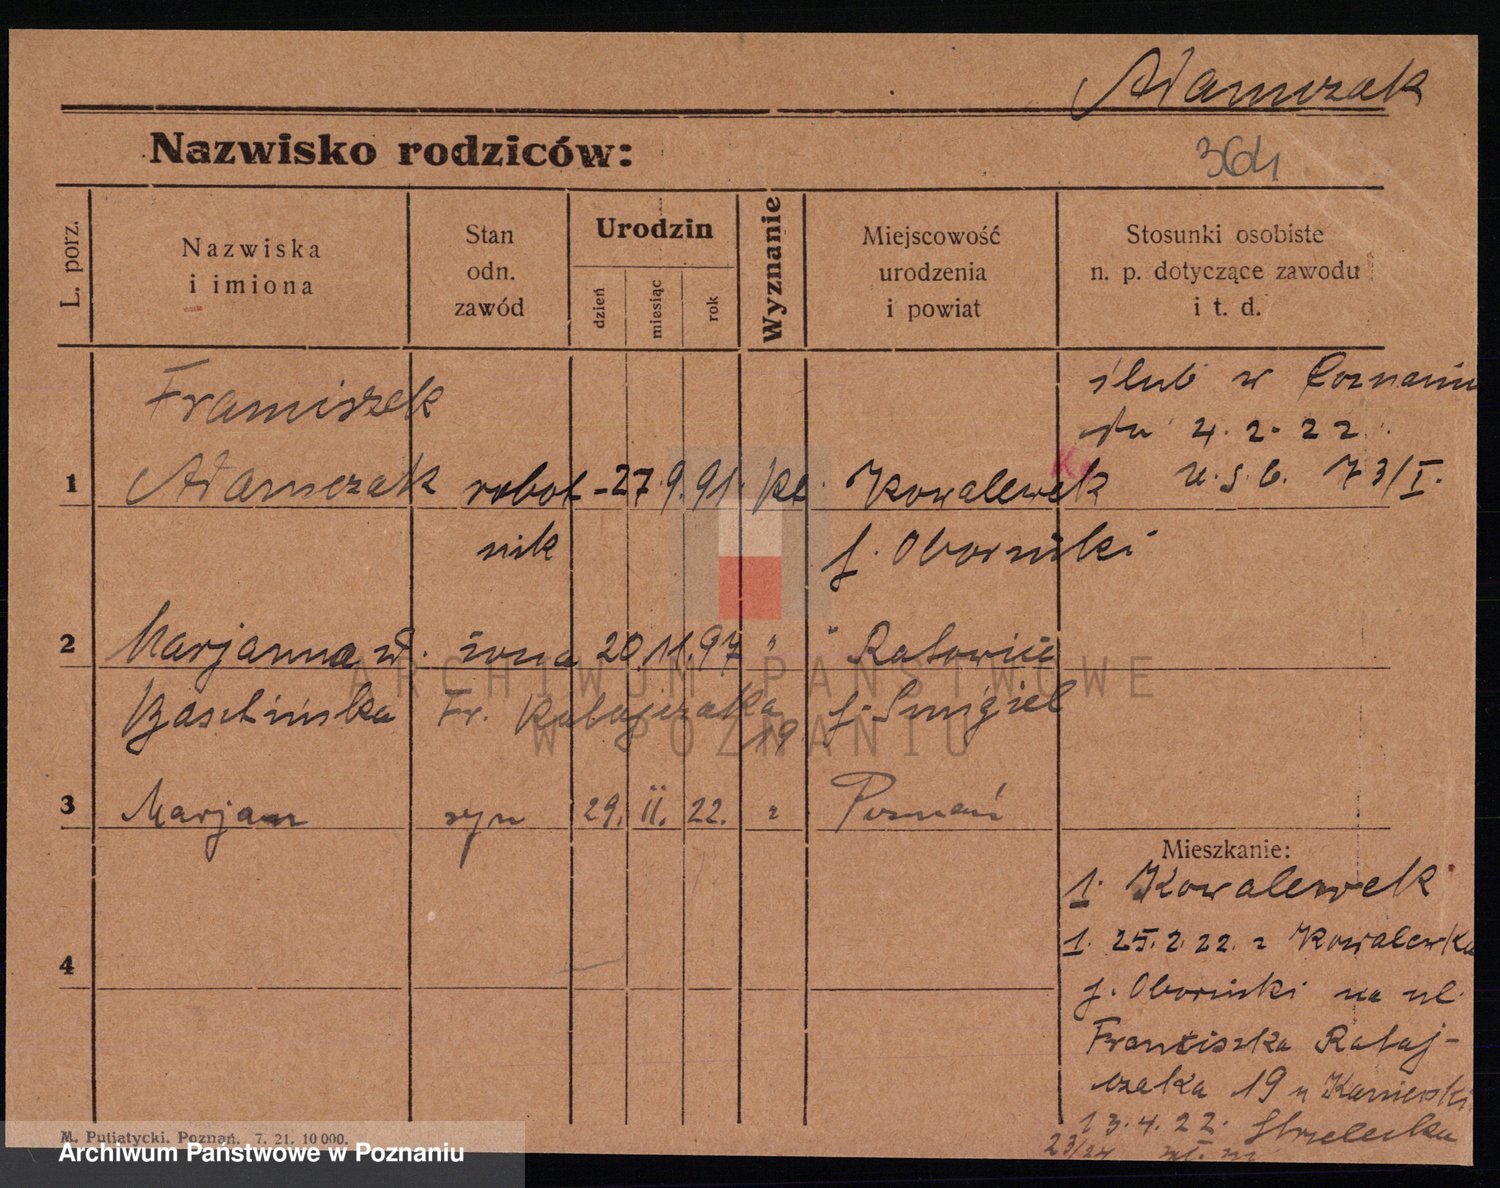 Adamczak
Nazwisko rodziców:
364
L. porz.
Nazwiska
i imiona
Stan
odn.
zawód
Urodzin
dzień
miesiąc
rok
Wyznanie
Miejscowość
urodzenia
i powiat
Stosunki osobiste
n. p. dotyczące zawodu
i t. d.
Franciszek
ślub w Poznaniu
dn 4. 2. 22.
1 Adamczak robot- 27 9. 91. kt. Kowalewek
u. s. c. 73/I.
nik p. Obornicki
2 Marjanna żona 20 11. 97 " " Ratowice
Fr. Ratajczaka p. Śmigiel
19
3 Marjan syn 29. II. 22. " Poznań
Mieszkanie:
1. Kowalewek
4
1. 25. 2. 22. z Kowalewka
p. Obornicki na ul.
Franciszka Rataj-
czaka 19 u
13. 4. 22. Strzelecka
23/24
M. Putiatycki. Poznań. 7. 21. 10 000.
ARCHIWUM PAŃSTWOWE
W POZNANIU
Archiwum Państwowe w Poznaniu